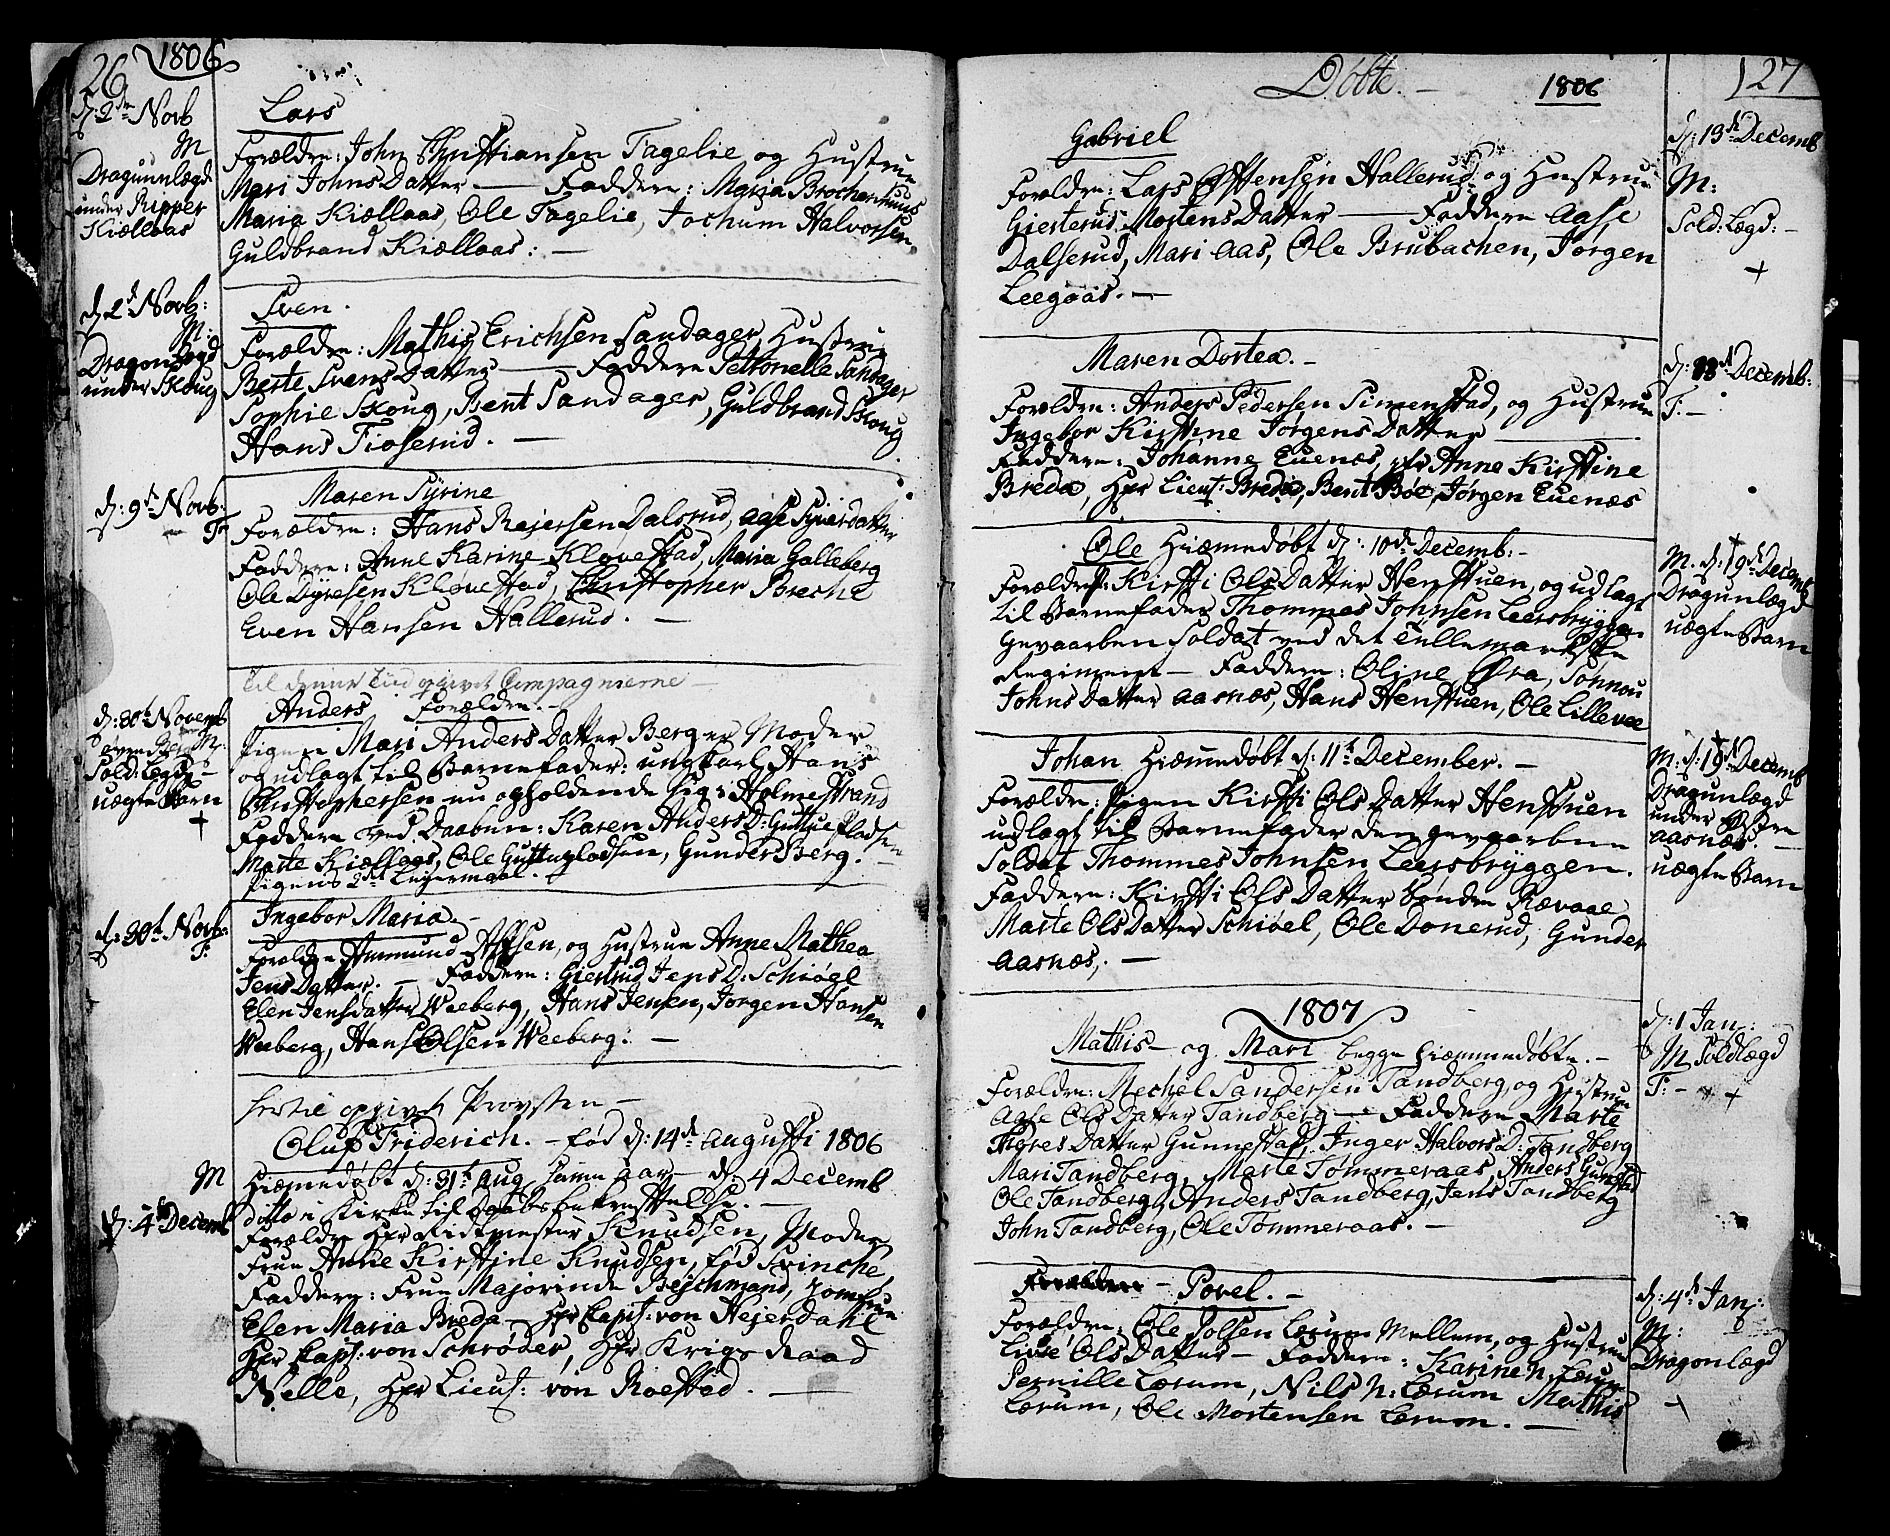 26 1806
d: 2den Novb
M
Dragunlægd
under Ripper
Kiællaas
Lars
Forældre: John Christiansen Tagelie og Hustrue
Mari JohnsDatter — Faddere: Maria Brochermuus
Maria Kiællaas, Ole Tagelie, Jochum Halvorsen,
Guldbrand Kiællaas: —
d 2d Novb:
M:
Dragonlægd
under Skoug
Sven.
Forældre: Mathis Erichsen Sandager, Hustrue
Berte SvensDatter — Faddere Petronelle Sandager
Sophie Skoug, Bent Sandager, Guldbrand Skoug
Hans Fioserud. —
d: 9d Novb.
F
Maren Syrine
Forældre: Hans Rejersen Dalsrud, Aase Syverdatter
Faddere: Anne Karine Klovestad, Maria Galleberg
Ole Dyresen Klovestad, Christopher Breche
Even Hansen Hallerud. —
Til denne Tiid opgivet Compagnierne —
d: 30d Novemb
M:
Sold: Lægd: —
uægte Barn
+
Anders Forældre. —
Pigen Mari AndersDatter Berg er Moder
og udlagt til Barnefader: ungkarl Hans
Christophersen nu opholdende sig i Holmestrand
Faddere ved Daaben: Karen AndersD: Guttue Pladsen
Marte Kiællaas, Ole Guttuepladsen, Gunder Berg. —
Pigens 2det Leyermaal.
d: 30d Novb:
F:
Ingebor Maria. —
Forældre Ammund Assen, og Hustrue Anne Mathea
JensDatter. — Faddere: Giertrud JensD: Schrøgl
Elen Jensdatter Weeberg, Hans Jensen, Jørgen Hansen
Weeberg, Hans Olsen Weeberg: —
hertil opgivet Provsten —
M
d: 4de Decemb
Oluf Friderich. — fød d: 14de Augusti 1806
Hiemmedøbt d: 31t Aug samme aar — d: 4 Decemb
ditto i Kirke til Daabsbekræftelse. —
Forældre Hr Ridtmester Knudsen, Moder
Frue Anne Kirstine Knudsen, fød Svinche,
Faddere: Frue Majorinde Bejschmand, Jomfrue
Elen Maria Breda — Hr Capt: von Hejerdahl
Hr Capt: von Schrøder, Hr Krigs Raad
Nelle, Hr Lieut: von Roestad. —
Døbte. — 1806 127
Gabriel
Forældre: Lars Østensen Hallerud og Hustrue
Giesterud MortensDatter — Faddere Aase
Dalserud, Mari Aas, Ole Brubachen, Jørgen
Leegaas. —
d: 13d Decemb
M:
Sold: Lægd: —
+
Maren Dortea. —
Forældre: Anders Pedersen Simenstad, og Hustrue
Ingebor Kirstine JørgensDatter —
Faddere: Johanne Euenæs, Anne Kirstine
Breda, Hr Lieut: Breda, Bent Bøe, Jørgen Euenæs
d: 18d Decemb:
F: —
Ole Hiæmmedøbt d: 10de Decemb: —
Forældre: Kirsti OlsDatter Henstuen, og udlagt
til Barnefader Thommes Johnsen Leersbryggen
Gevaarben Soldat ved det Tellemarkske
Regiment — Faddere: Oline Øra, Tonnou
JohnsDatter Aasnæs, Hans Henstuen, Ole Lillevee
M. d: 19d Decemb
Dragunlægd
uægte Barn
Johan Hiæmmedøbt d: 11te December. —
Forældre: Pigen Kirsti OlsDatter Henstuen
udlagt til Barnefader den gevaarben
Soldat Thommes Johnsen Leersbryggen.
Faddere: Kirsti OlsDatter Søndre Revaae
Marte OlsDatter Schiøel, Ole Donerud, Gunder
Aasnæs, —
M: d: 19d Decemb
Dragunlægd
under Østre
Aasnæs. —
uægte Barn
1807
Mathis — og Mari begge hiemmedøbte. —
Forældre: Mechel Sandersen Tandberg, og Hustrue
Aase OlsDatter Tandberg — Faddere Marte
ThoresDatter Gunnestad, Inger HalvorsD: Tandberg
Mari Tandberg, Marte Tommeraas, Anders Gunestad
Ole Tandberg, Anders Tandberg, Jens Tandberg
John Tandberg, Ole Tommeraas. —
d: 1 Jan:
M Soldlægd
F: — +
Forældre — Povel. —
Forældre: Ole Jolsen Lærum Mellem, og Hustrue
Live OlsDatter — Faddere: Karine N. Lærum
Pernille Lærum, Nils N: Lærum Mathis
Lærum, Ole Mortensen Lærum. —
d: 4d Jan:
M:
Dragonlægd
+